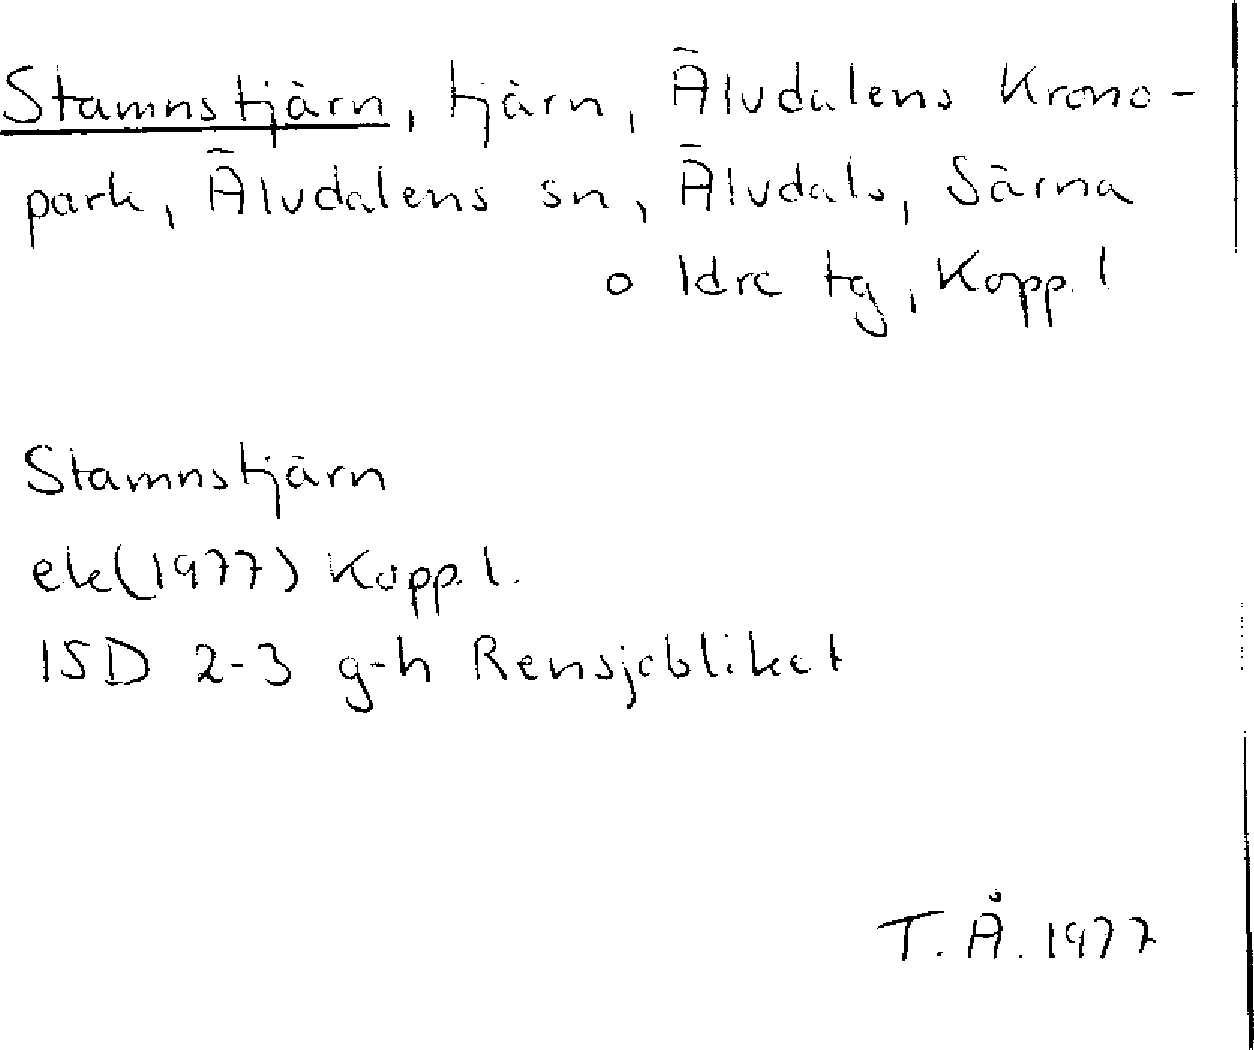 Stamnstjärn, tjärn, Älvdalens Krono-
park, Älvdalens sn, Älvdals, Särna
o Idre tg, Kopp. l
Stamnstjärn
ek(1977) Kopp. l.
15D 2-3 g-h Rensjöbliket
T. Å. 1977